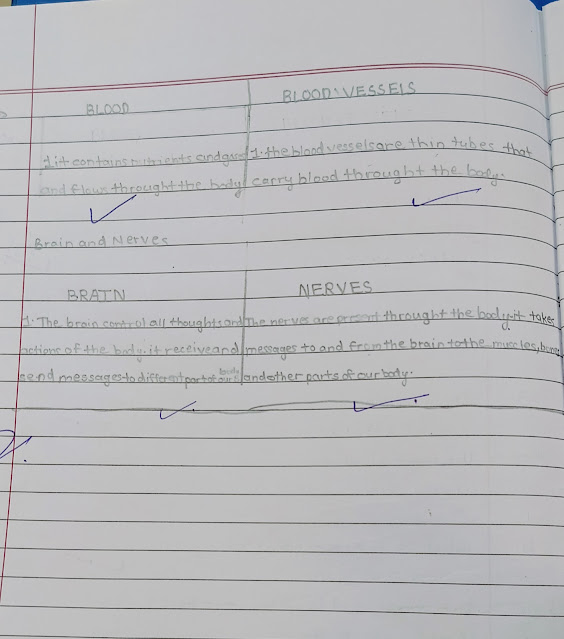 BLOOD BLOOD VESSELS
1 it contains nutrients and gases 1. the blood vessels are thin tubes that
and flows throught the body carry blood throught the body.
Brain and Nerves
BRAIN NERVES
1. The brain control all thoughts and The nerves are present throught the body. it takes
actions of the body. it receive and messages to and from the brain to the muscles,
send messages to different part of our body and other parts of our body.